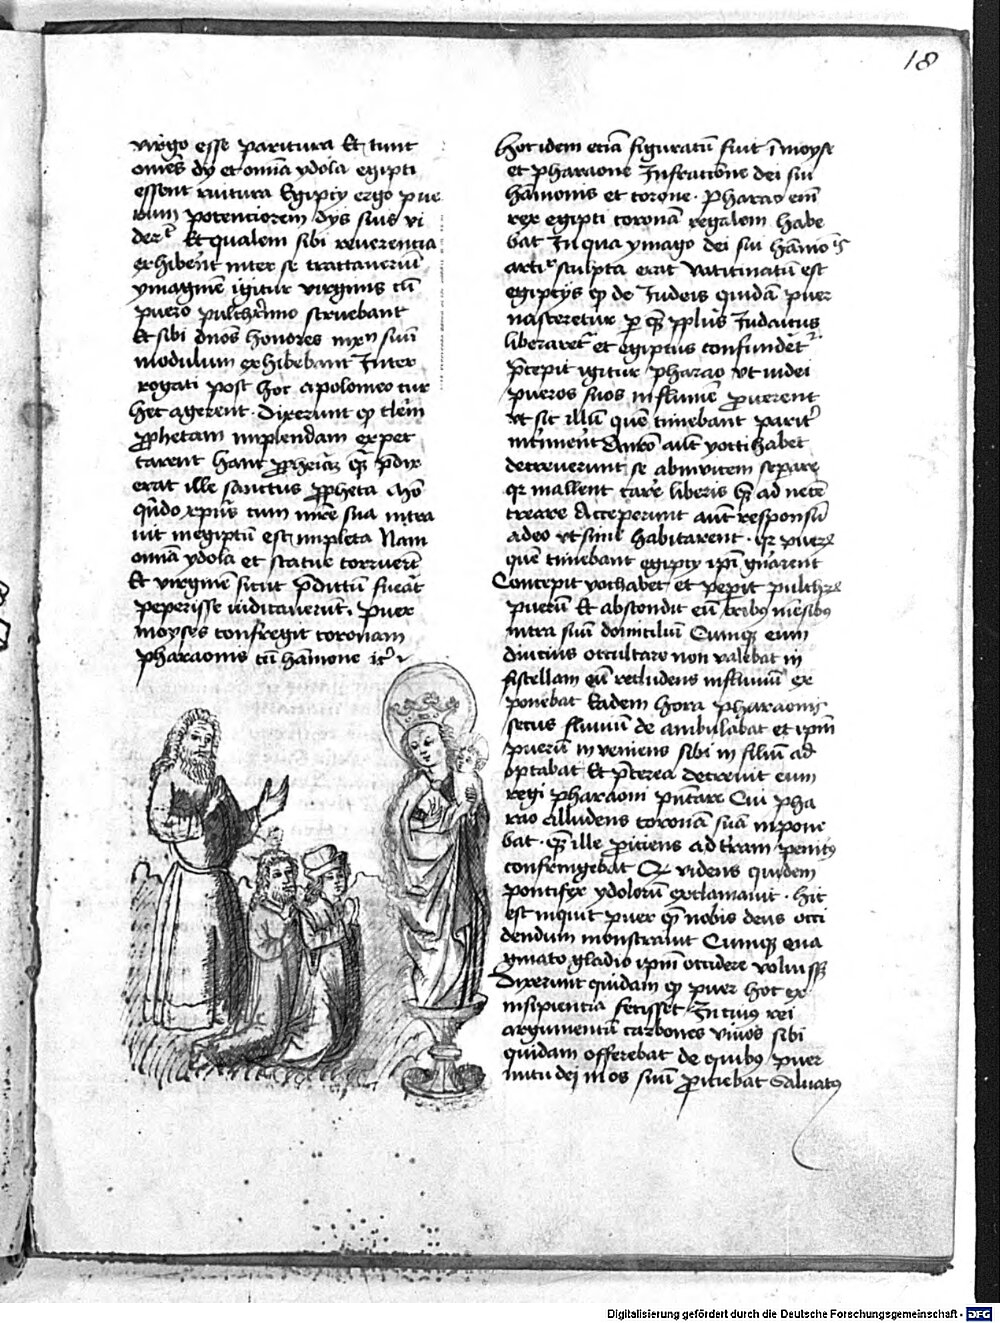 18
virgo esse paritura Et tunc
om̄es dij et om̄ia ydola egipti
essent ruitura Egiptij ergo pue
rum potenciorem dijs suis vi
der̄t Et qualem sibi reuerencia
exhiberēt inter se tractauerūt
ymaginē igitur virginis cū
puero pulcherrimo struebant
Et sibi diuos honores iux̄ suū
modulum exhibebant Inter
rogati post hoc a ptolomeo cur
hec agerent · Dixerunt qͥ
prophetam implendam expec
tarent hanc prophetiā quā p̄dix
erat ille sanctus propheta
qn̄do xpūs cum mr̄e sua intra
uit in egiptū est impleta Nam
om̄ia ydola et statue corruerūt
Et virginē sicut p̄dictū fuerāt
peperisse iudicauerūt. Puer
moyses confregit coronam
pharaonis cū hāmone
Hoc idem eciā figuratū fuit ī moyse
et pharaone Infractione dei sui
hāmonis et corone · Pharao em̄
rex egipti coronā regalem habe
bat In qua ymago dei sui hāmoīs
artīͤ sculpta erat Vaticinatū est
egiptijs qͥ de Iudeis quidā puer
nasceretur p quē pplūs Iudaicus
liberaret̄ et egiptus confundet̄
P̄cepit igitur pharao vt iudei
pueros suos in flumē proicerent
vt sic illū quē timebant parit̄
int̄imerēt Amrō aūt yocthabet
decreuerunt se abinuicem separe
qr mallent carē liberis quā ad necē
creare Acceperunt aūt responsū
a deo vt simul habitarent · qr puerū
quē timebant egiptij ip̄i gn̄arent
Concepit yocthabet et peperit pulchrū
puerū Et abscondit eū tribus mēsibus
intra suū domicilium Cumque eum
diucius occultare non valebat in
fiscellam eū recludens in fluuiū ex
ponebat Eadem hora pharaonis
secus fluuiū de ambulabat et ip̄m
puerū inveniens sibi in filiū ad
optabat Et p̄terea decreuit eum
regi pharaoni p̄ntare Cui pha
rao alludens coronā suā impone
bat · quā ille proiciens ad terram penitus
confringebat Quod videns quidem
pontifex ydolorū exclamauit · hic
est inquit puer quē nobis deus occi
dendum monstrauit Cumque eua
ginato gladio ip̄m occidere voluisset
Dixerunt quidam quod puer hoc ex
insipiencia fecisset In cuius rei
argumentū carbones viuos sibi
quidam offerebat de quibus puer
nutu dei in os suū proiciebat Saluatus
Digitalisierung gefördert durch die Deutsche Forschungsgemeinschaft - DFG